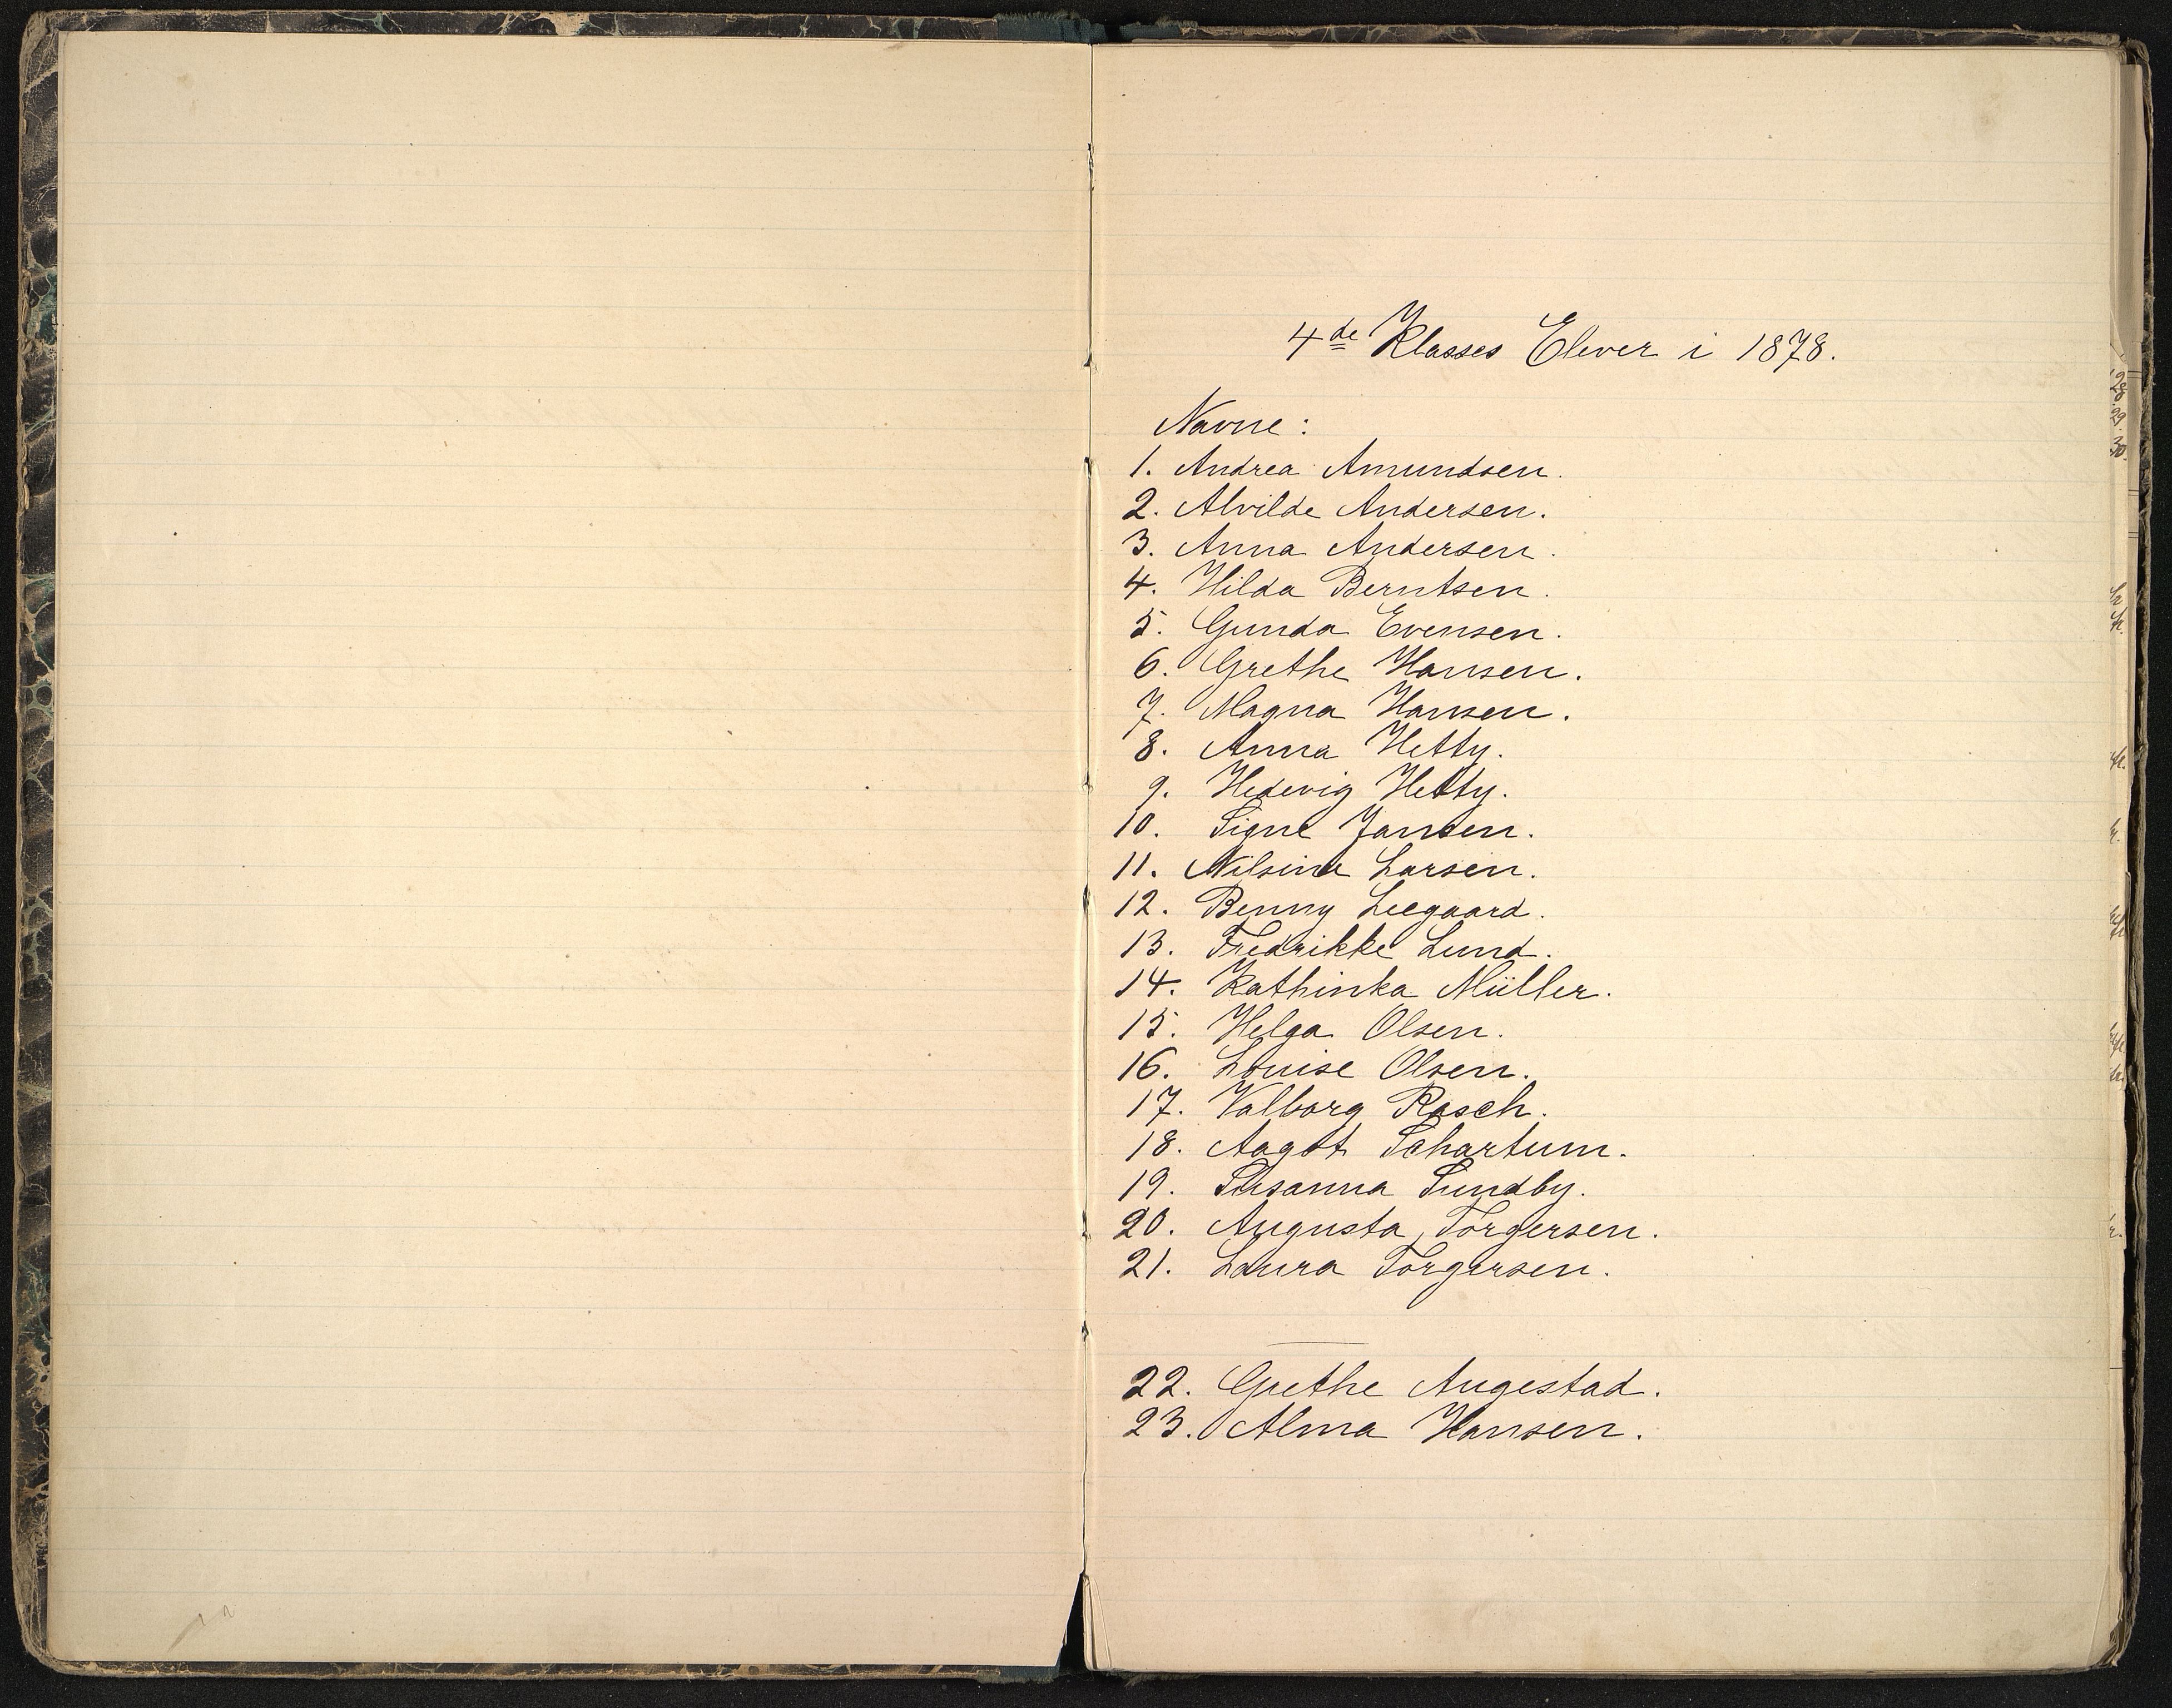 4de Klasses Elever i 1878.
Navne:
1. Andrea Amundsen.
2. Alvilde Andersen.
3. Anna Andersen.
4. Hilda Berntsen.
5. Gunda Evensen.
6. Grethe Hansen.
7. Magna Hansen.
8. Anna Hetty.
9. Hedevig Hetty.
10. Signe Jansen.
11. Nilsina Larsen.
12. Benny Leegaard.
13. Fredrikke Lund.
14. Kathinka Müller.
15. Helga Olsen.
16. Louise Olsen.
17. Valborg Rasch.
18. Aagot Schartum.
19. Susanna Sundby.
20. Augusta Torgersen.
21. Laura Torgersen.
22. Grethe Augestad.
23. Alma Hansen.
28.
29.
30.